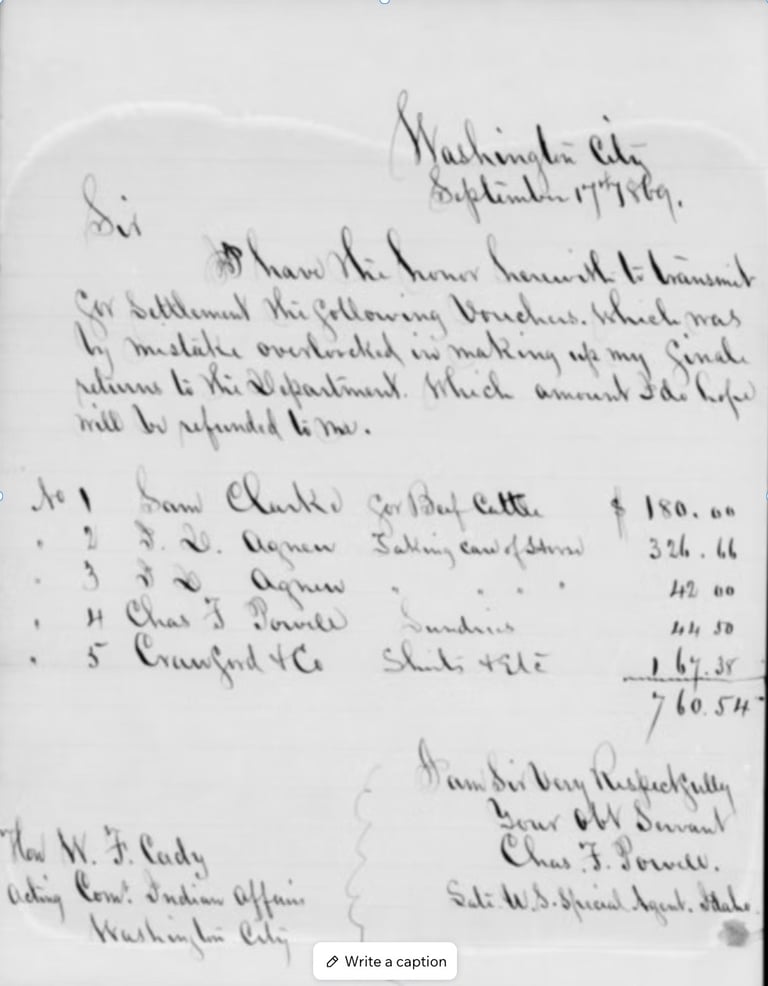 Washington City
September 17th 1869.
Sir
I have the honor herewith to transmit
for Settlement the following Vouchers. Which was
by mistake overlooked in making up my final
returns to the Department. Which amount I do hope
will be refunded to me.
No 1 Sam Clarke for Beef Cattle $ 180.00
" 2 F. D. Agnew Taking care of Store 326.66
" 3 F D Agnew " " " " 42 00
" 4 Chas F Powell Sundries 44 50
" 5 Crawford & Co Shirts & Etc 167.38
760.54
I am Sir Very Respectfully
Your Obt Servant
Chas. F. Powell.
Late U.S. Special Agent. Idaho.
Hon W. F. Cady
Acting Com. Indian Affairs
Washington City
Write a caption